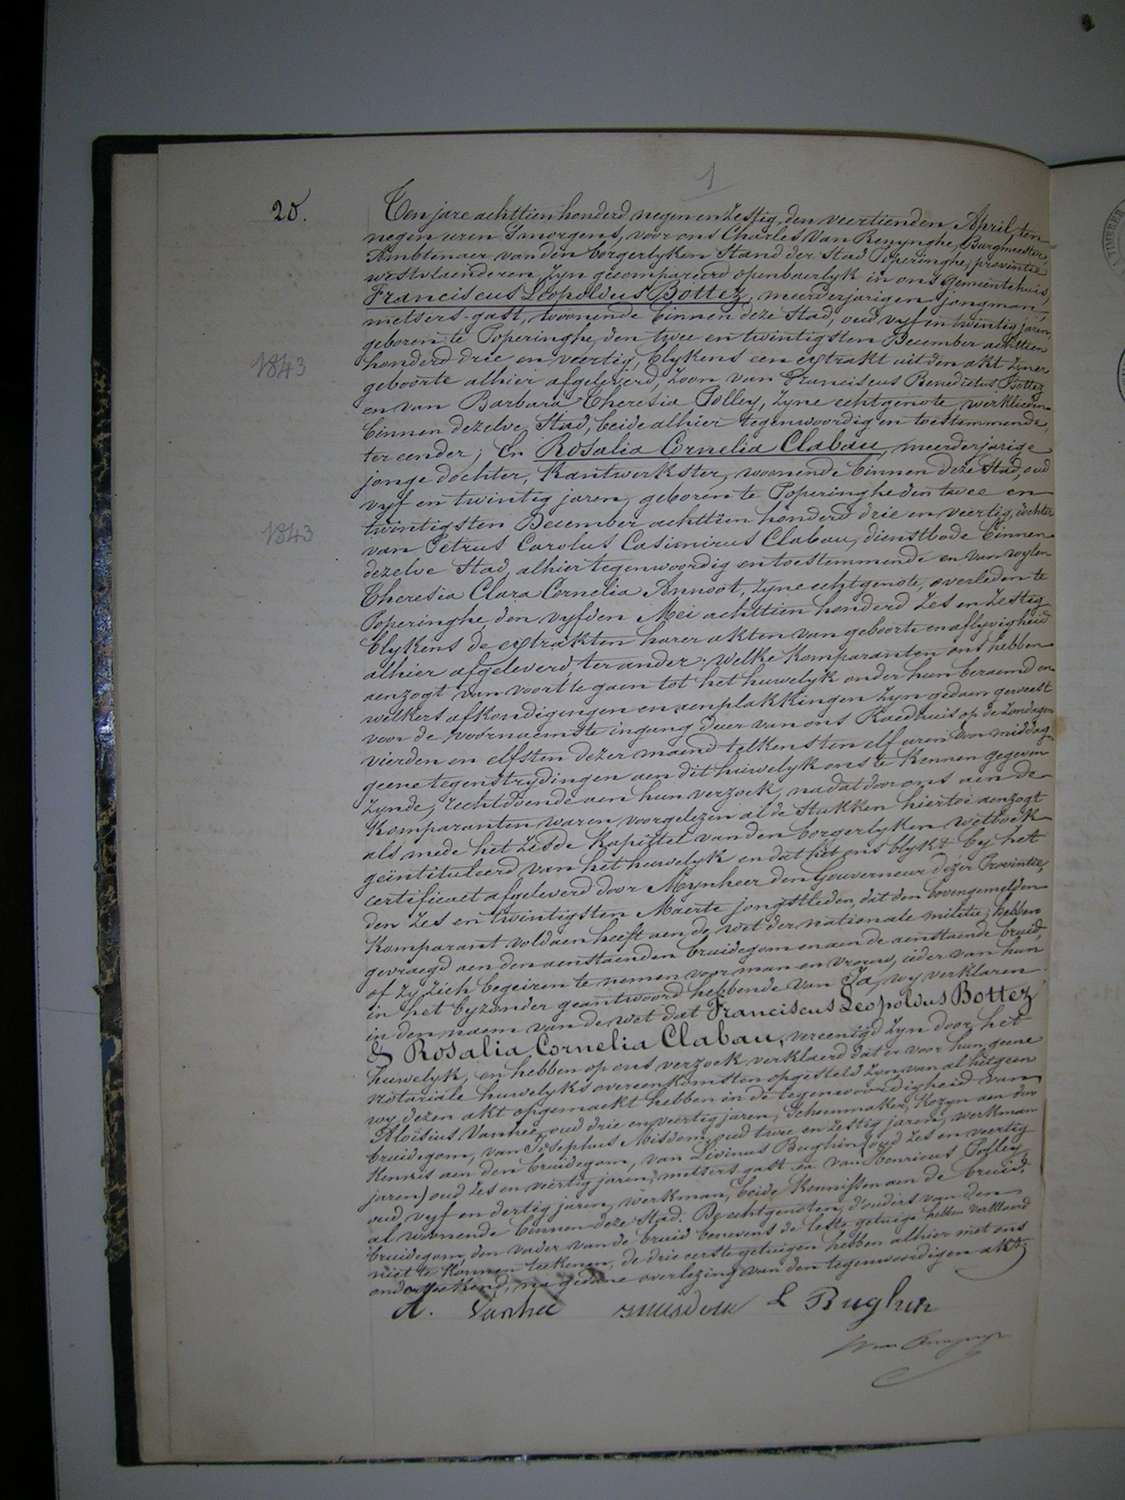 1
20.
Ten jare achttien honderd negen en zestig, den veertienden April, ten
negen uren 's morgens, voor ons Charles Van Renynghe, Burgmeester,
Amblenaer van den borgerlyken Stand der Stad Poperinghe, provintie
westvlaenderen, zyn gecompareerd openbaerlyk in ons gemeentehuis,
Franciscus Leopoldus Bottez, meerderjarigen jongman,
metsers-gast, woonende binnen deze Stad, oud vyf en twintig jaren,
geboren te Poperinghe, den twee en twintigsten December achttien
honderd drie en veertig, blykens een extrakt uit den akt zyner
1843
geboorte alhier afgeleverd, zoon van Franciscus Benedictus Bottez
en van Barbara Theresia Polley, zyne echtgenote, werklieden
binnen dezelve Stad, beide alhier tegenwoordig en toestemmende,
ter eender; En Rosalia Cornelia Clabau, meerderjarige
jonge dochter, kantwerkster, woonende binnen deze Stad, oud
vyf en twintig jaren, geboren te Poperinghe den twee en
twintigsten December achttien honderd drie en veertig, dochter
1843
van Petrus Carolus Casimirus Clabau, dienstbode binnen
dezelve Stad, alhier tegenwoordig en toestemmende en van wylen
Theresia Clara Cornelia Annoot, zyne echtgenote, overleden te
Poperinghe den vyfden Mei achttien honderd zes en zestig
blykens de extrakten harer akten van geboorte en aflyvigheid
alhier afgeleverd ter ander; welke komparanten ons hebben
aenzogt van voort te gaen tot het huwelyk onder hun beraemd en
welkers afkondigingen en aenplakkingen zyn gedaen geweest
voor de voornaemste ingang deur van ons Raedhuis op de zondagen
vierden en elfsten dezer maend telkens ten elf uren voor middag
geene tegenstrydingen aen dit huwelyk ons te kennen gegeven
zynde, rechtdoende aen hun verzoek, na dat door ons aen de
komparanten waren voorgelezen al de Stukken hiertoe aenzogt
als mede het zesde kapittel van den borgerlyken wetboek
geïntituleerd van het huwelyk en dat het ons blykt by het
certificaet afgeleverd door Mynheer den Gouverneur dezer Provintie,
den zes en twintigsten Maerte jongstleden, dat den bovengemelden
komparant voldaen heeft aen de wet der nationale militie; hebben
gevraegd aen den aenstaenden bruidegom en aen de aenstaende bruid,
of zy zich begeiren te nemen voor man en vrouw, ieder van hun
in het byzonder geantwoord hebbende van Ja, wy verklaren
in den naem van de wet dat Franciscus Leopoldus Bottez
& Rosalia Cornelia Clabau, vereenigd zyn door het
huwelyk, en hebben op ons verzoek verklaerd dat er voor hun geene
notariale huwelyks overeenkomsten opgesteld zyn, van al hetgeen
wy dezen akt opgemaekt hebben in de tegenwoordigheid van
Aloïsius Vanhee, oud drie en veertig jaren, Schoenmaker, kozyn aen den
bruidegom, van Josephus Misdom, oud twee en zestig jaren, werkman
kennis aen den bruidegom, van Livinus Bughin (oud zes en veertig
jaren) oud zes en veertig jaren, metsers gast en van Henricus Polley,
oud vyf en dertig jaren, werkman, beide kennissen aen de bruid,
al woonende binnen deze Stad. De echtgenoten, d'ouders van den
bruidegom, den vader van de bruid benevens de leste getuige hebben verklaerd
niet te konnen teekenen, de drie eerste getuigen hebben alhier met ons
onderteekend, na gedane overlezing van den tegenwoordigen akt
A. Vanhee J Misdom L Bughin
Van Renynghe